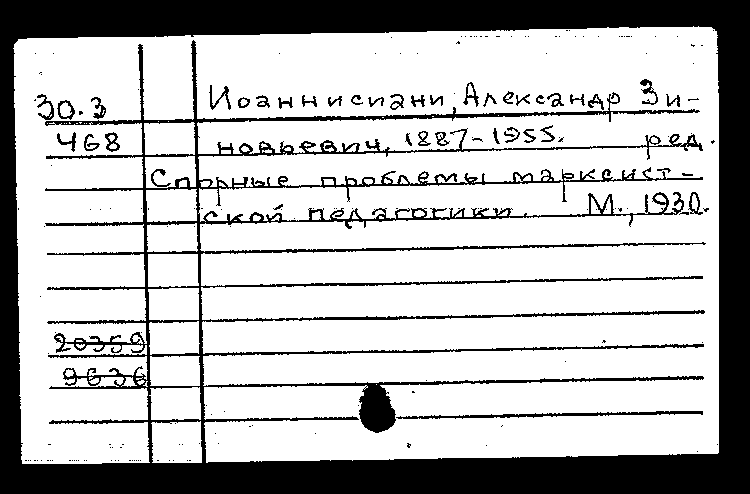 30.3 Иоаннисиани, Александр Зи-
468 новьевич, 1887-1955. ред.
Спорные проблемы марксист-
ской педагогики. М., 1930.
20359
9636